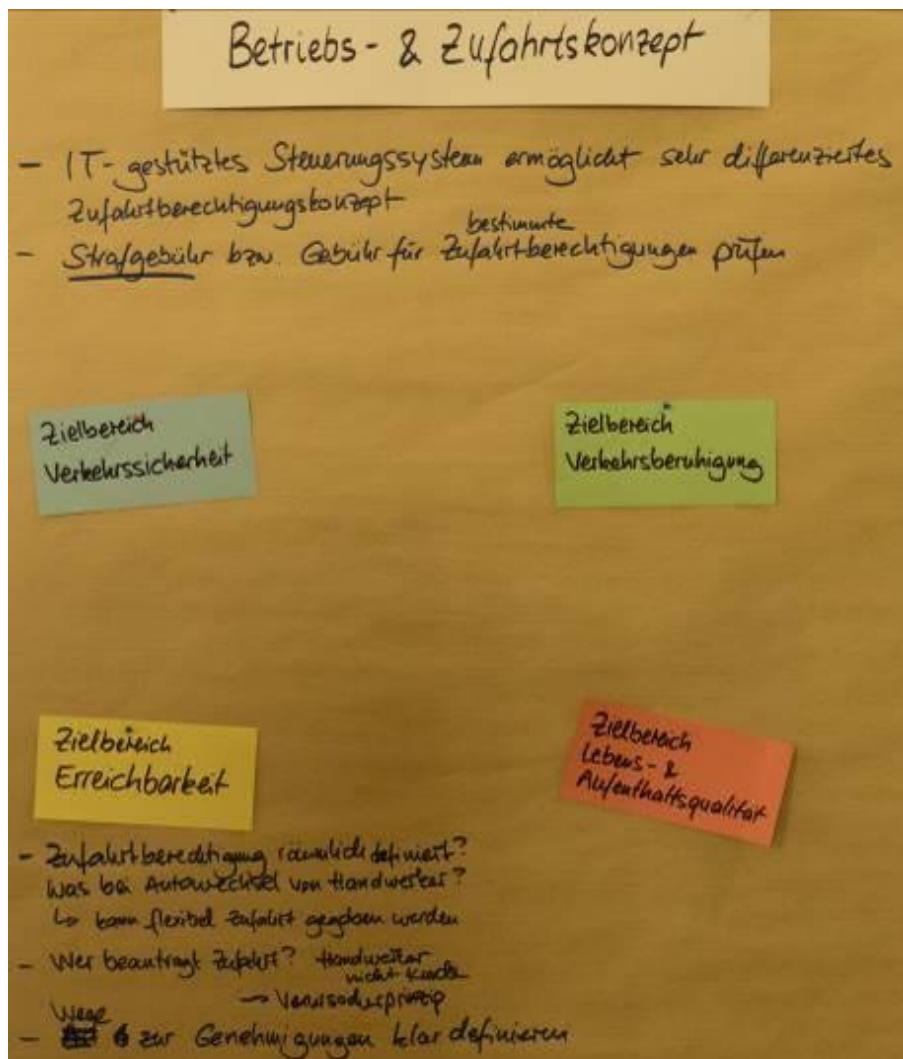 Betriebs- & Zufahrtskonzept
- IT-gestütztes Steuerungssystem ermöglicht sehr differenziertes
Zufahrtberechtigungskonzept
bestimmte
- Strafgebühr bzw. Gebühr für Zufahrtberechtigungen prüfen
Zielbereich
Verkehrssicherheit
Zielbereich
Verkehrsberuhigung
Zielbereich
Erreichbarkeit
Zielbereich
Lebens- &
Aufenthaltsqualität
- Zufahrtberechtigung räumlich definiert?
Was bei Autowechsel von Handwerker?
↳ kann flexibel Zufahrt gegeben werden
- Wer beantragt Zufahrt? Handwerker
nicht Kunde
→ Verursacherprinzip
Wege
- zur Genehmigungen klar definieren